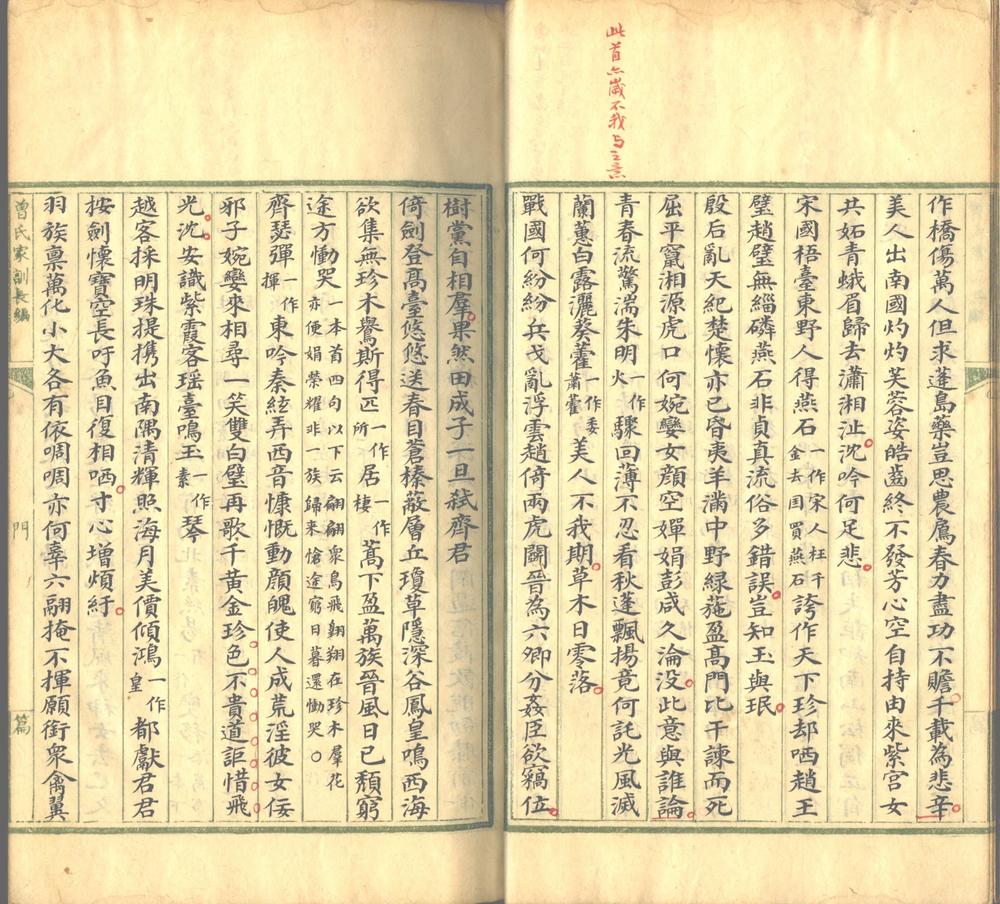 此首亦歲不我與之意
作橋傷萬人但求蓬島藥豈思農鳸春力盡功不贍千載為悲辛
美人出南國灼灼芙蓉姿皓齒終不發芳心空自持由來紫宮女
共妬青蛾眉歸去瀟湘沚沈吟何足悲
宋國梧臺東野人得燕石一作宋人枉千金去国買燕石誇作天下珍却哂趙王
璧趙璧無緇磷燕石非貞真流俗多錯誤豈知玉與珉
殷后亂天紀楚懷亦已昏夷羊滿中野綠葹盈高門比干諫而死
屈平竄湘源虎口何婉孌女顏空嬋娟彭咸久淪没此意與誰論
青春流驚湍朱明一作火驟回薄不忍看秋蓬飄揚竟何託光風滅
蘭蕙白露灑葵藿一作委蕭藿美人不我期草木日零落
戰國何紛紛兵戈亂浮雲趙倚兩虎鬭晉為六卿分姦臣欲竊位
樹黨自相羣果然田成子一旦弒齊君
倚劍登高臺悠悠送春目蒼榛蔽層丘瓊草隱深谷鳳皇鳴西海
欲集無珍木鷽斯得匹一作所居一作棲蒿下盈萬族晉風日已頹窮
途方慟哭一本首四句以下云翩翩衆鳥飛翱翔在珍木羣花亦便娟榮耀非一族歸来愴途窮日暮還慟哭
齊瑟彈一作揮東吟秦絃弄西音慷慨動顏魄使人成荒淫彼女佞
邪子婉孌來相尋一笑雙白璧再歌千黃金珍色不貴道詎惜飛
光沈安識紫霞客瑶臺鳴玉一作素琴
越客採明珠提携出南隅清輝照海月美價傾鴻一作皇都獻君君
按劍懷寶空長吁魚目復相哂寸心增煩紆
羽族稟萬化小大各有依啁啁亦何辜六翮掩不揮願銜衆禽翼
曾氏家訓長編
門
篇